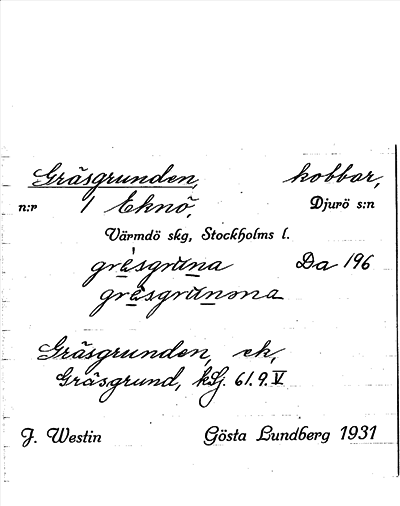 Gräsgrunden, kobbar,
n:r 1 Eknö, Djurö s:n
Värmdö skg, Stockholms l.
gräsgruna Da 196
gräsgrunəna
Gräsgrunden, ek,
Gräsgrund, 61.9.V
J. Westin Gösta Lundberg 1931